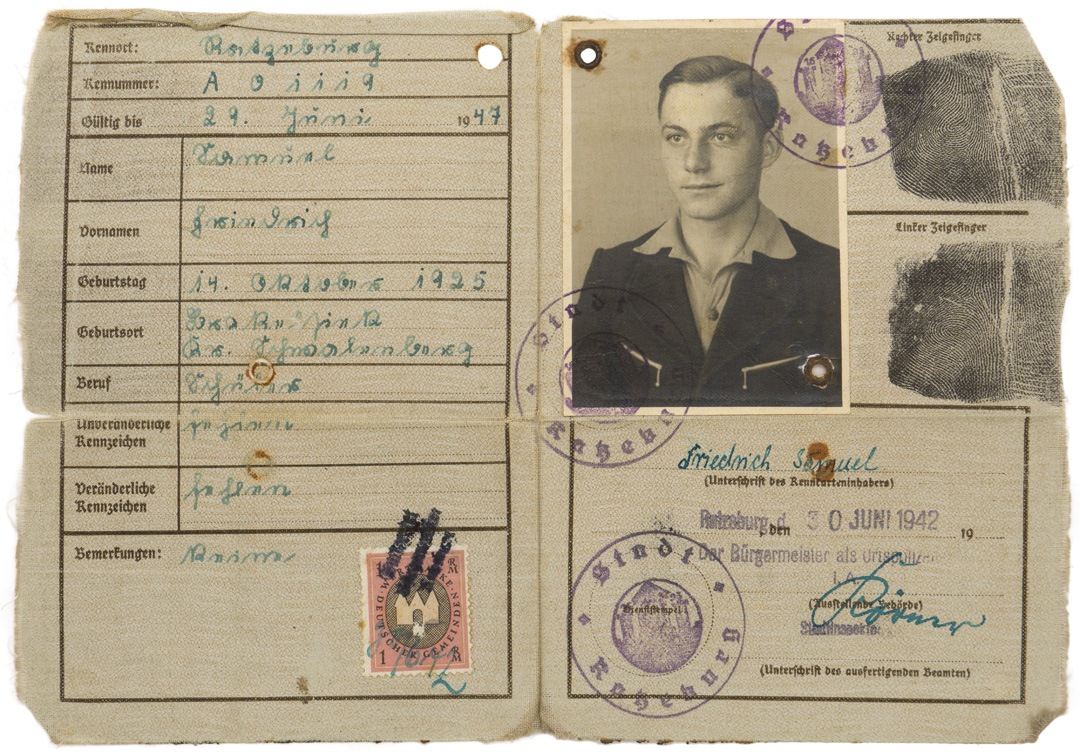 Kennort: Ratzeburg
Kennummer: A 01119
Gültig bis 29. Juni 1947
Name Samuel
Vornamen Friedrich
Geburtstag 14. Oktober 1925
Geburtsort
Kr. Schwalenberg
Beruf Schüler
Unveränderliche Kennzeichen fehlen
Veränderliche Kennzeichen fehlen
Bemerkungen: Keine
WERTMARKE · DEUTSCHER GEMEINDEN ·
1 RM
1 RM
Stadt Ratzeburg
Rechter Zeigefinger
Linker Zeigefinger
Stadt Ratzeburg
Friedrich Samuel
(Unterschrift des Kennkarteninhabers)
Ratzeburg, den 30. JUNI 1942 19
Der Bürgermeister als Ortspolizei
I.A.
(Ausstellende Behörde)
Dienststempel
Stadtinspektor
(Unterschrift des ausfertigenden Beamten)
Stadt Ratzeburg